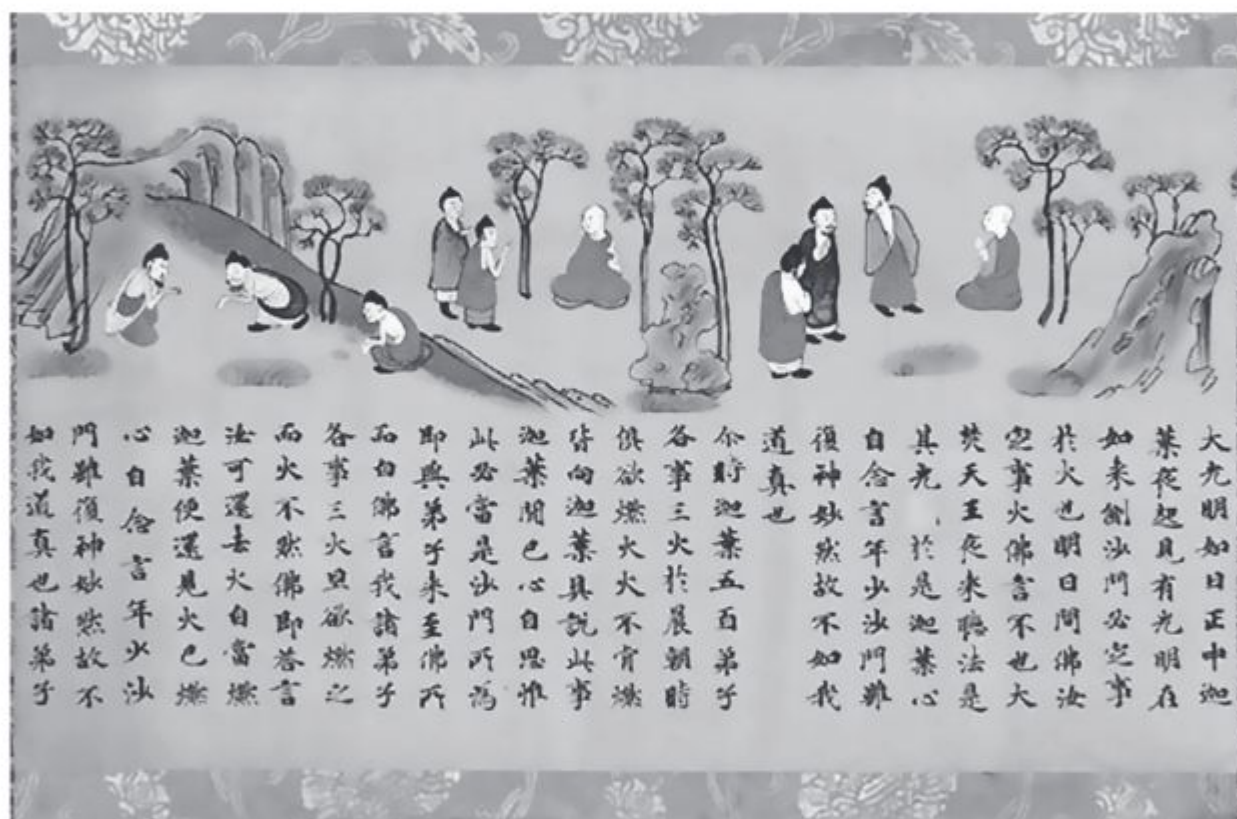 大光明如日正中迦
葉夜起見有光明在
如来側沙門必定事
於火也明日問佛汝
定事火佛言不也大
梵天王夜来聴法是
其光於是迦葉心
自念言年少沙門雖
復神妙然故不如我
道真也
尒時迦葉五百弟子
各事三火於晨朝時
俱欲燃火火不肯燃
皆向迦葉具說此事
迦葉聞已心自思惟
此必當是沙門所為
即與弟子来至佛所
而白佛言我諸弟子
各事三火旦欲燃之
而火不然佛即答言
汝可還去火自當燃
迦葉便還見火已燃
心自念言年少沙
門雖復神妙然故不
如我道真也諸弟子